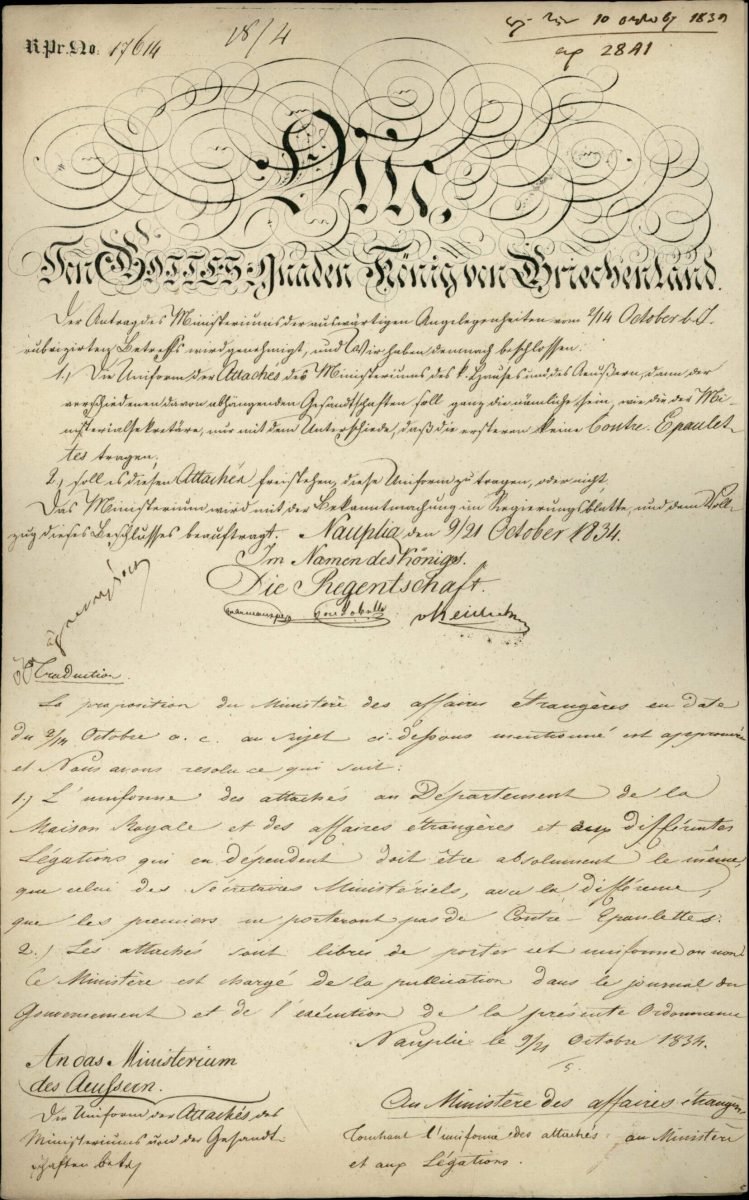 R.Pr.No. 17614
18/4
10 1834
2841
OTTO,
Von GOTTES Gnaden König von Griechenland.
Der Antrag des Ministeriums der auswärtigen Angelegenheiten vom 2/14 October l. J.
rubrizirten Betreffs wird genehmigt, und Wir haben demnach beschlossen:
1.) Die Uniform der Attachés des Ministeriums des k. Hauses und des Aeußern, dann der
verschiedenen davon abhängenden Gesandtschaften soll ganz die nämliche sein, wie die der Mi-
nisterialsekretäre, nur mit dem Unterschiede, daß die ersteren keine Contre-Epaulet-
tes tragen.
2.) soll es diesen Attachés freistehen, diese Uniform zu tragen, oder nicht,
Das Ministerium wird mit der Bekanntmachung im Regierungsblatte, und dem Voll-
zug dieses Beschlusses beauftragt. Nauplia den 9/21 October 1834.
Im Namen des Königs.
Die Regentschaft.
Traduction.
La proposition du Ministère des affaires étrangères en date
du 2/14 Octobre a. c. au sujet ci-dessous mentionné est approuvée
et Nous avons resolu ce qui suit:
1.) L'uniforme des attachés au Département de la
Maison Royale et des affaires étrangères et aux différentes
Légations qui en dépendent doit être absolument le même,
que celui des Sécrétaires Ministériels, avec la différence,
que les premiers ne porteront pas de Contre-Epaulettes.
2.) Les attachés sont libres de porter cet uniforme ou non.
Ce Ministère est chargé de la publication dans le journal du
Gouvernement et de l'exécution de la présente Ordonnance
Nauplie le 9/21 Octobre 1834.
An das Ministerium
des Aeussern.
Die Uniform der Attachés des
Ministeriums und der Gesandt-
schaften betr.
Au Ministère des affaires étrangères.
Touchant l'uniforme des attachés au Ministère
et aux Légations.